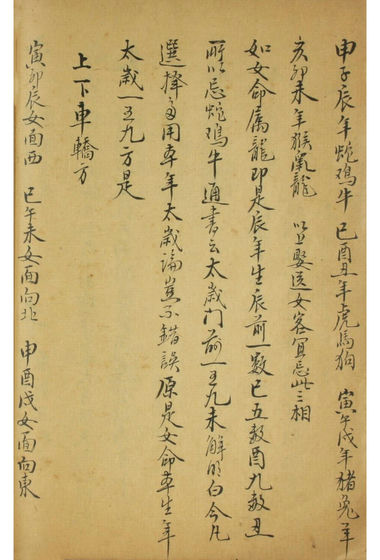 申子辰年蛇鸡牛 巳酉丑年虎馬狗 寅午戌年猪兔羊
亥卯未年猴鼠龍 以上娶送女客宜忌此三相
如女命属龍即是辰年生辰前一数巳五数酉九数丑
所以忌蛇鸡牛通書云太歲门前一五九未解明白今凡
選擇多用本年太歲論豈不錯誤原是女命本生年
太歲一五九方是
上下車轎方
寅卯辰女面西 巳午未女面向北 申酉戌女面向東